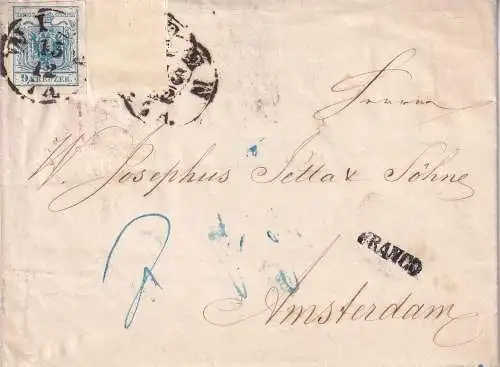 9 KREUZER
WIEN
Herrn
W. Josephus Setta & Söhne
FRANCO
Amsterdam